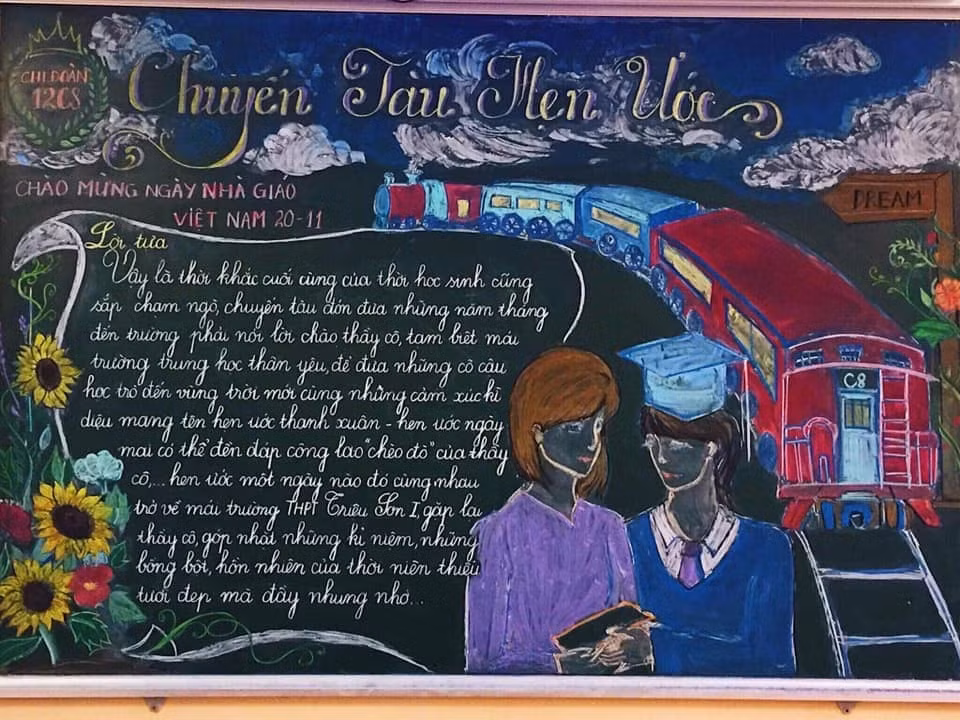 CHI ĐOÀN
12C8
Chuyến Tàu Hẹn Ước
CHÀO MỪNG NGÀY NHÀ GIÁO
VIỆT NAM 20-11
DREAM
Lời tựa
Vậy là thời khắc cuối cùng của thời học sinh cũng
sắp chạm ngõ, chuyến tàu đón đưa những năm tháng
đến trường phải nói lời chào thầy cô, tạm biệt mái
trường trung học thân yêu, để đưa những cô câu
học trò đến vùng trời mới cùng những cảm xúc kì
diệu mang tên hẹn ước thanh xuân - hẹn ước ngày
mai có thể đền đáp công lao "chèo đò" của thầy
cô,... hẹn ước một ngày nào đó cùng nhau
trở về mái trường THPT Triệu Sơn I, gặp lại
thầy cô, góp nhặt những kỉ niệm, những
bồng bột, hồn nhiên của thời niên thiếu
tươi đẹp mà đầy nhung nhớ...
C8